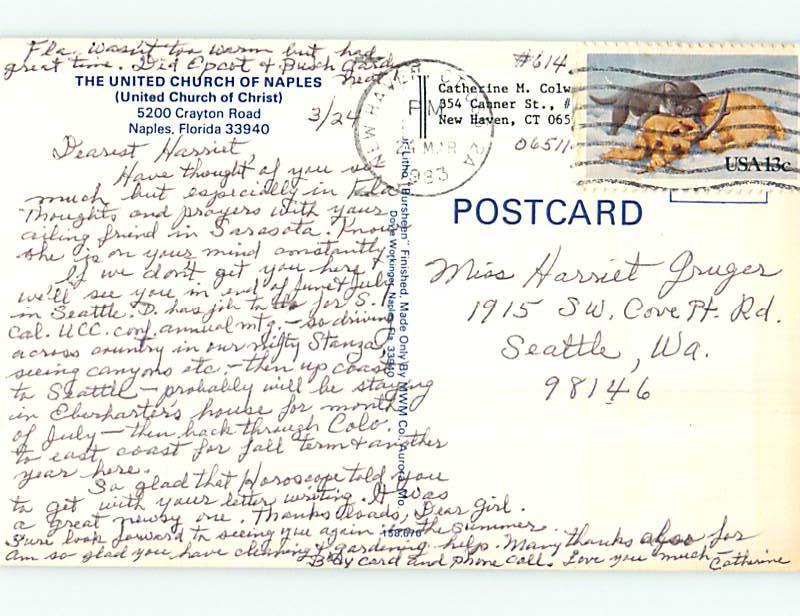 Fla. wasn't too warm but had
great time. Did Epcot & Busch Gard
near
THE UNITED CHURCH OF NAPLES
(United Church of Christ)
5200 Crayton Road
Naples, Florida 33940
3/24
Dearest Harriet,
Have thought of you so
much but especially in Fla.
Thoughts and prayers with your
ailing friend in Sarasota. Know
she is on your mind constantly.
If we don't get you here &
we'll see you in end of June & July
in Seattle. D. has job to do for S.
Cal. UCC. conf. annual mtg. — so driving
across country in our nifty Stanza
seeing canyons etc — then up coast
to Seattle — probably will be staying
in Eberharter's house for month
of July — then back through Colo.
to east coast for fall term & another
year here.
So glad that Horoscope told you
to get with your letter writing. It was
a great newsy one. Thanks loads, Dear girl.
Sure look forward to seeing you again in the summer.
Am so glad you have cleaning & gardening help. Many thanks also for
B'day card and phone call. Love you much — Catherine
Litho. "Bursheen" Finished, Made Only By MWM Co., Aurora, Mo.
Naples, Fla. 33940
158,076
#614
Catherine M. Colw
354 Canner St., #
New Haven, CT 065
06511
NEW HAVEN CT
PM
24 MAR
1983
USA 13c
POSTCARD
Miss Harriet Gruger
1915 SW. Cove Pt. Rd.
Seattle, Wa.
98146